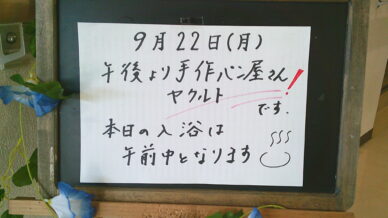 9月22日(月)
午後より手作パン屋さん
ヤクルト
です.
本日の入浴は
午前中となります